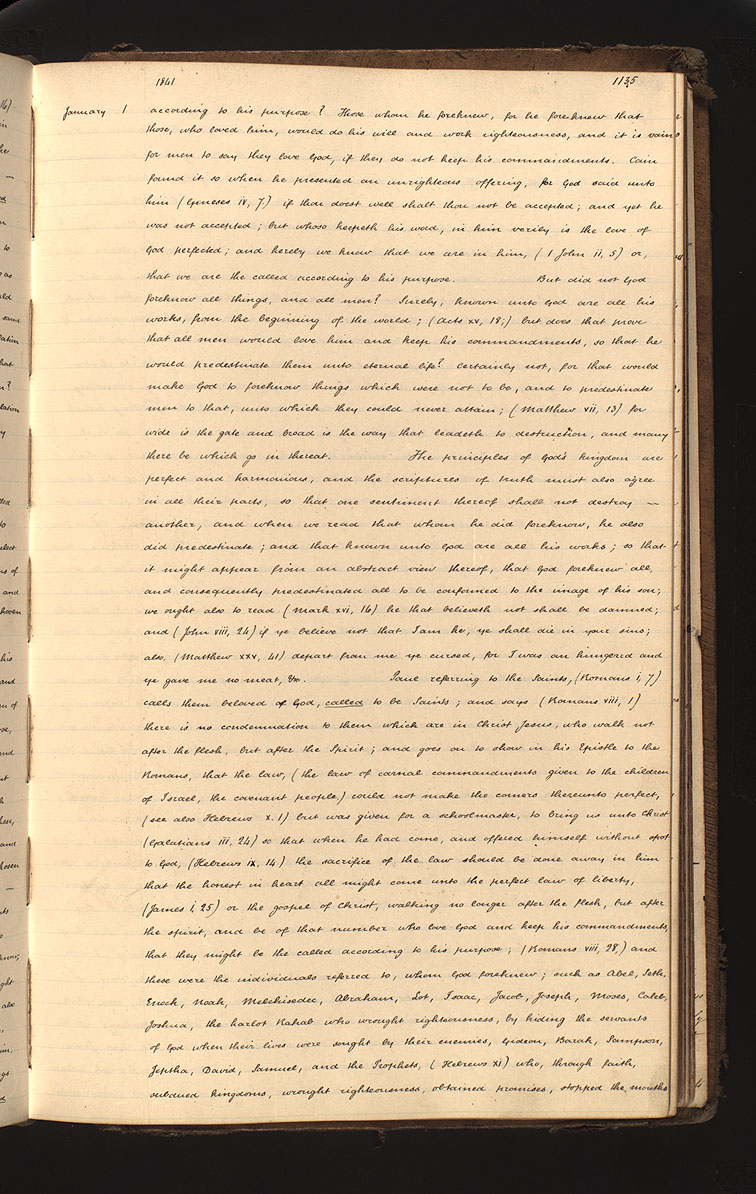 1841 1135
January 1 according to his purpose? Those whom he foreknew, for he foreknew that
those, who loved him, would do his will and work righteousness, and it is vain
for men to say they love God, if they do not keep his commandments. Cain
found it so when he presented an unrighteous offering, for God said unto
him (Geneses iv, 7,) if thou doest well shalt thou not be accepted; and yet he
was not accepted; but whoso keepeth his word, in him verily is the love of
God perfected; and hereby we know that we are in him, (1 John ii, 5) or,
that we are the called according to his purpose. But did not God
foreknow all things, and all men? Surely, known unto God are all his
works, from the beginning of the world; (Acts xv, 18;) but does that prove
that all men would love him and keep his commandments, so that he
would predestinate them unto eternal life? certainly not, for that would
make God to foreknow things which were not to be, and to predestinate
men to that, unto which they could never attain; (Matthew vii, 13) for
wide is the gate and broad is the way that leadeth to destruction, and many
there be which go in thereat. The principles of God's kingdom are
perfect and harmonious, and the scriptures of truth must also agree
in all their parts, so that one sentiment thereof shall not destroy —
another, and when we read that whom he did foreknow, he also
did predestinate; and that known unto God are all his works; so that
it might appear from an abstract view thereof, that God foreknew all,
and consequently predestinated all to be conformed to the image of his son;
we ought also to read (Mark xvi, 16) he that believeth not shall be damned;
and (John viii, 24) if ye believe not that I am he, ye shall die in your sins;
also, (Matthew xxv, 41) depart from me ye cursed, for I was an hungered and
ye gave me no meat, &c. Paul referring to the Saints, (Romans i, 7)
calls them beloved of God, called to be Saints; and says (Romans viii, 1)
there is no condemnation to them which are in Christ Jesus, who walk not
after the flesh, but after the Spirit; and goes on to show in his Epistle to the
Romans, that the law, (the law of carnal commandments given to the children
of Israel, the covenant people,) could not make the comers thereunto perfect,
(see also Hebrews x. 1) but was given for a schoolmaster, to bring us unto Christ
(Galatians iii, 24) so that when he had come, and offered himself without spot
to God, (Hebrews ix, 14) the sacrifice of the law should be done away in him
that the honest in heart all might come unto the perfect law of liberty,
(James i, 25) or the gospel of Christ, walking no longer after the flesh, but after
the spirit, and be of that number who love God and keep his commandments,
that they might be the called according to his purpose; (Romans viii, 28,) and
these were the individuals referred to, whom God foreknew; such as Abel, Seth,
Enoch, Noah, Melchisedec, Abraham, Lot, Isaac, Jacob, Joseph, Moses, Caleb,
Joshua, the harlot Rahab who wrought righteousness, by hiding the servants
of God when their lives were sought by their enemies, Gideon, Barak, Sampson,
Jeptha, David, Samuel, and the Prophets, (Hebrews XI) who, through faith,
subdued kingdoms, wrought righteousness, obtained promises, stopped the mouths